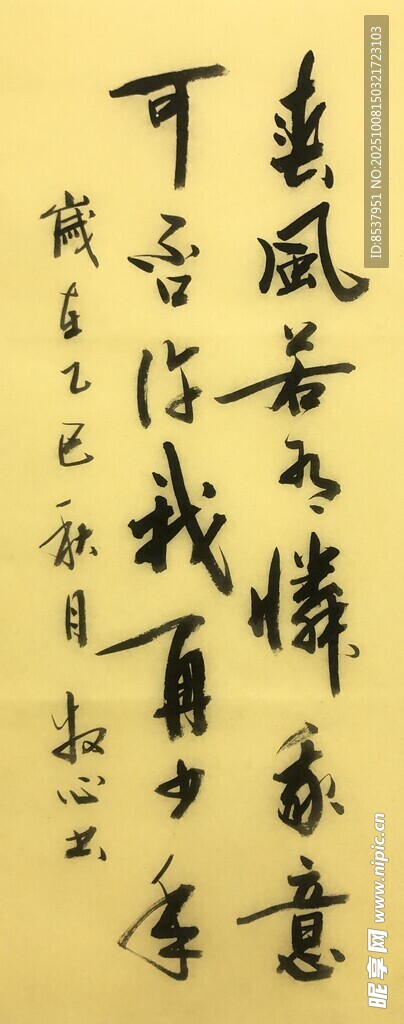 春風若有憐我意
可否許我再少年
歲在乙巳秋月 牧心書
ID:8537951 NO:20251008150321723103
昵享网 www.nipic.cn